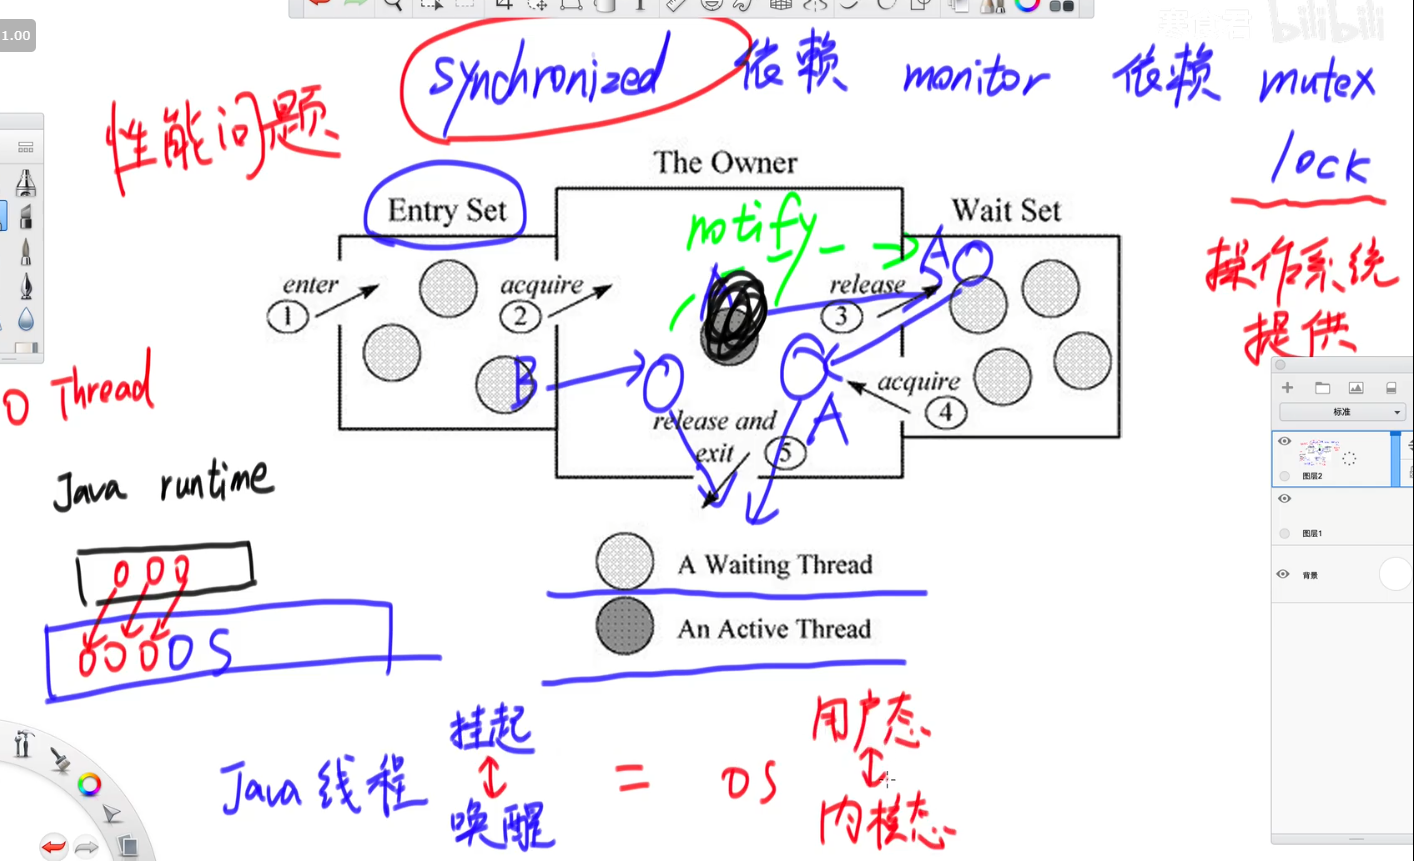 1.00
bilibili
synchronized 依赖 monitor 依赖 mutex
lock
性能问题
操作系统
提供
The Owner
Entry Set
Wait Set
notify
A
enter
1
acquire
2
release
3
B
acquire
4
A
release and
exit
5
Thread
Java runtime
OS
A Waiting Thread
An Active Thread
Java 线程 挂起 唤醒 = OS 用户态 内核态
标准
图层2
图层1
背景